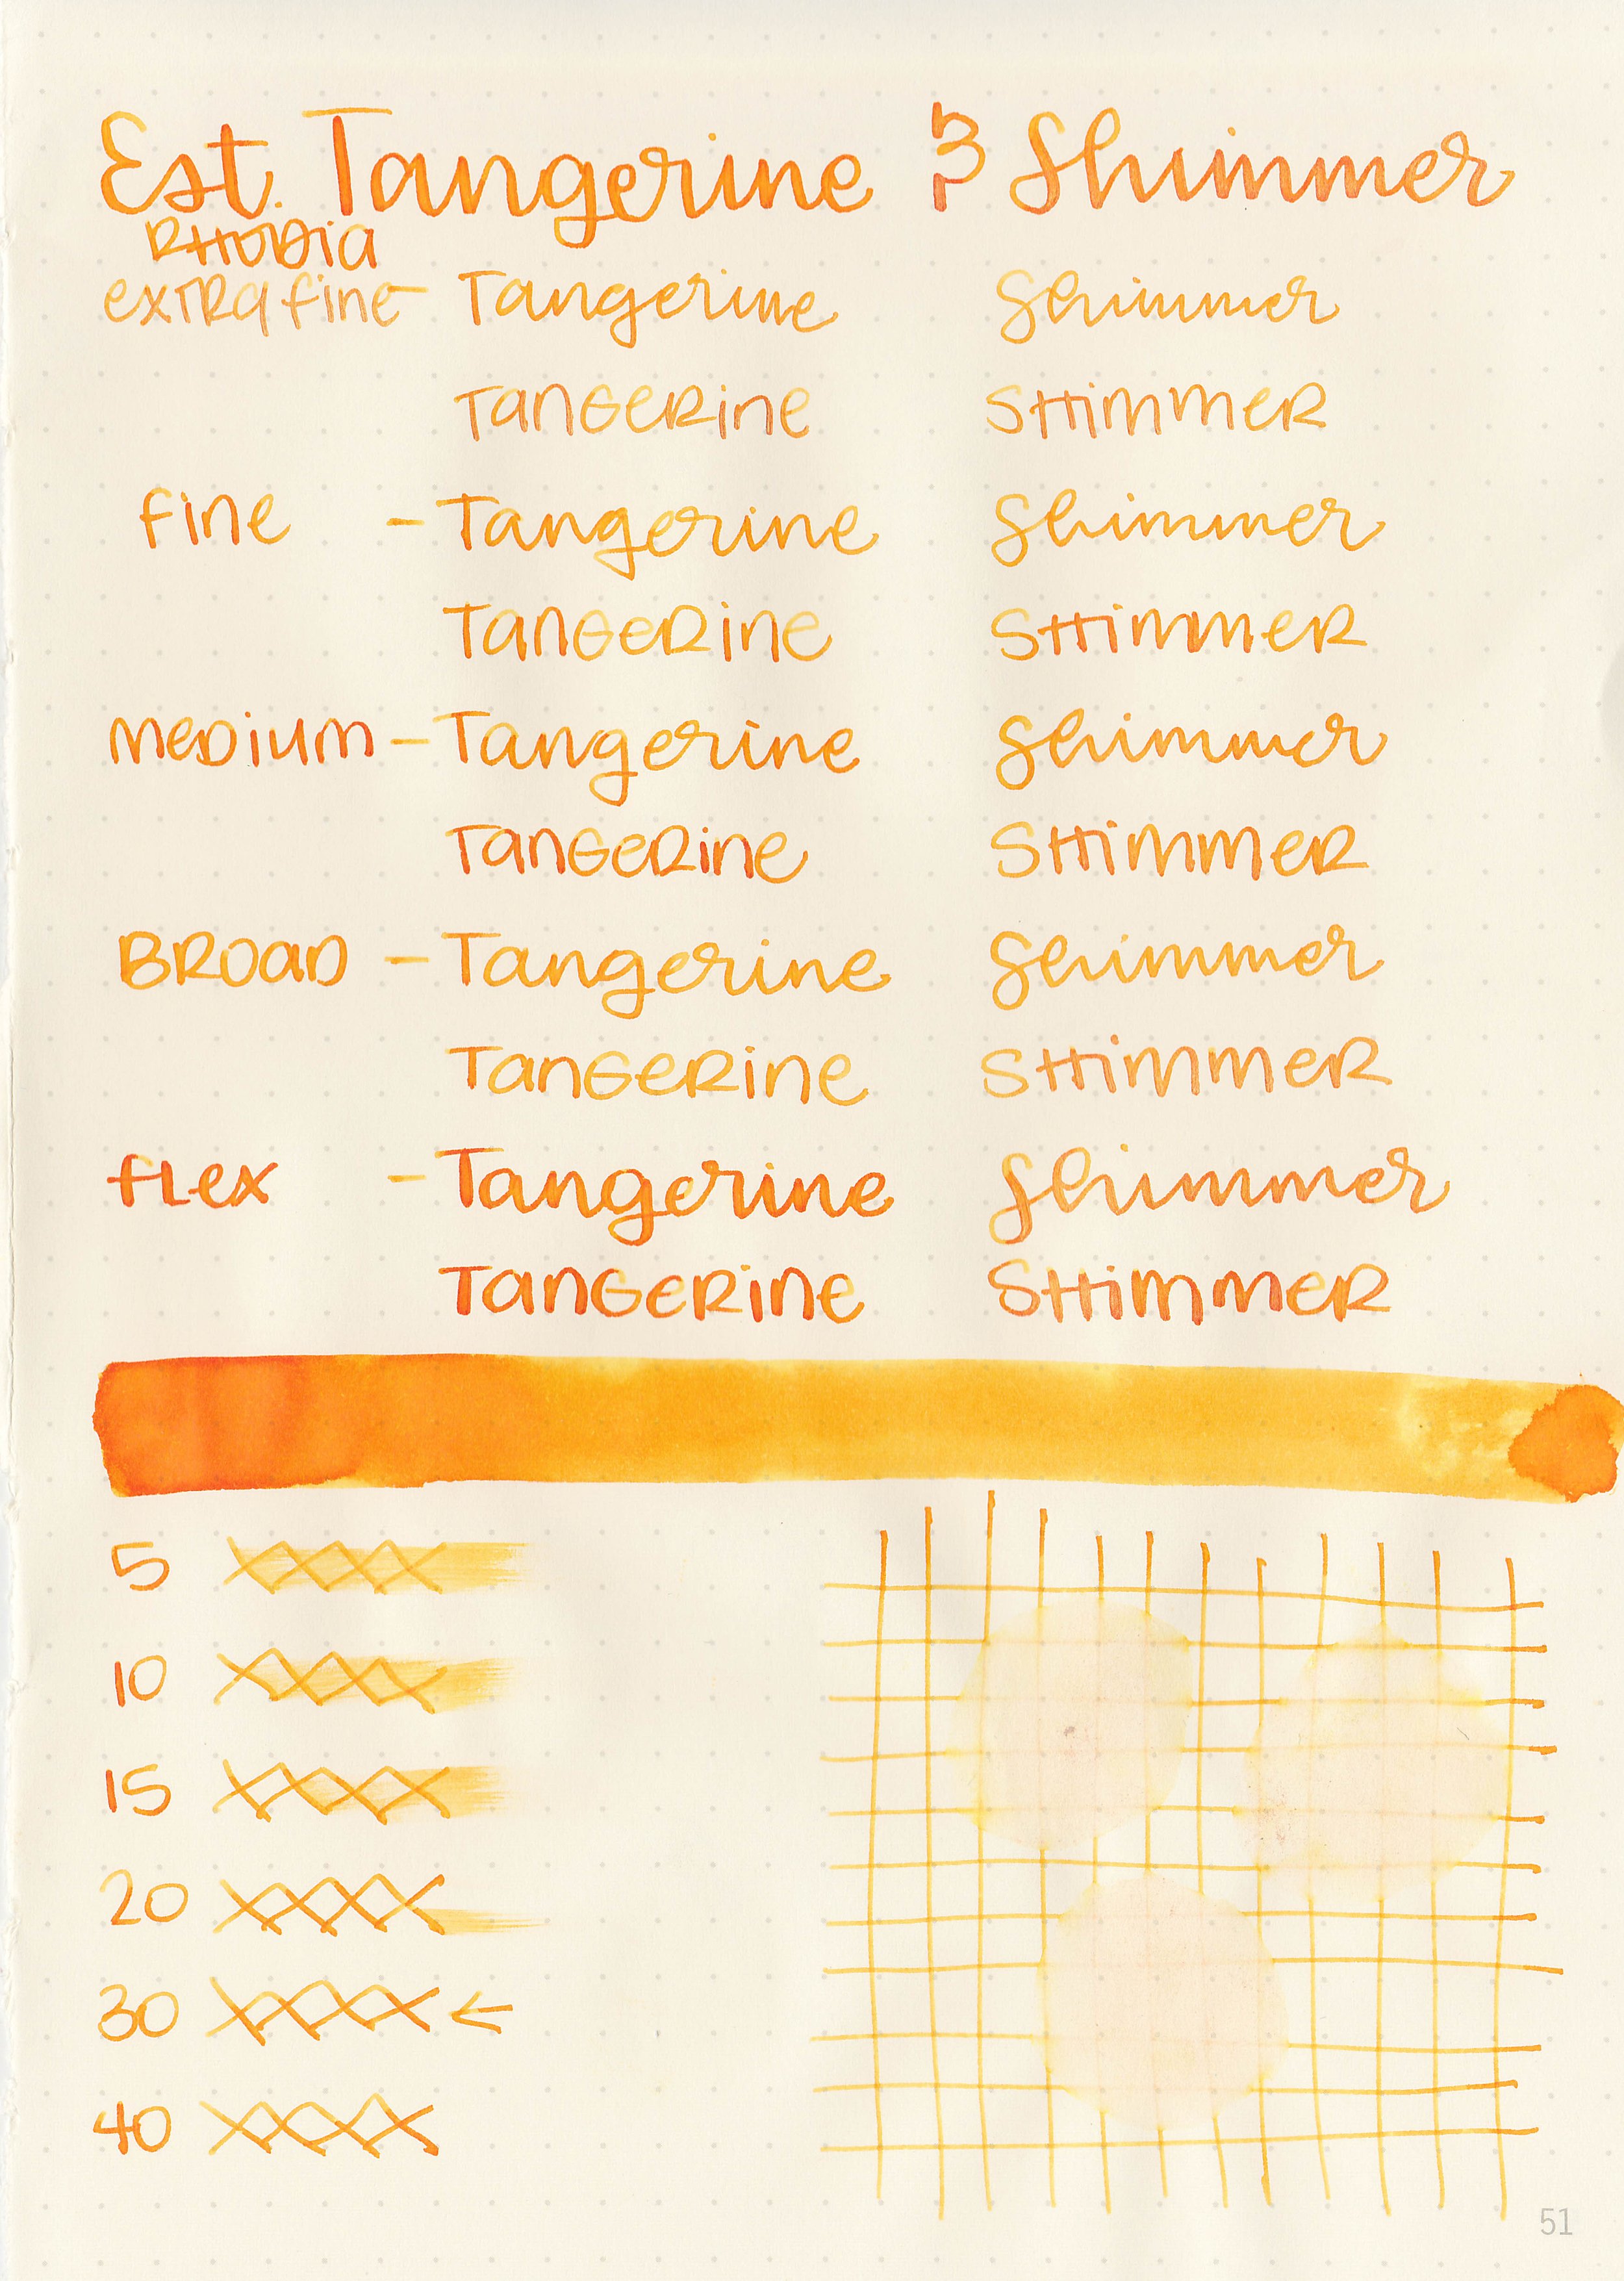 Est. Tangerine & Shimmer
RHODIA
extra fine - Tangerine Shimmer
Tangerine SHimmer
fine - Tangerine Shimmer
Tangerine SHimmer
medium - Tangerine Shimmer
Tangerine SHimmer
BROAD - Tangerine Shimmer
Tangerine SHimmer
flex - Tangerine Shimmer
Tangerine SHimmer
5
10
15
20
30 ←
40
51